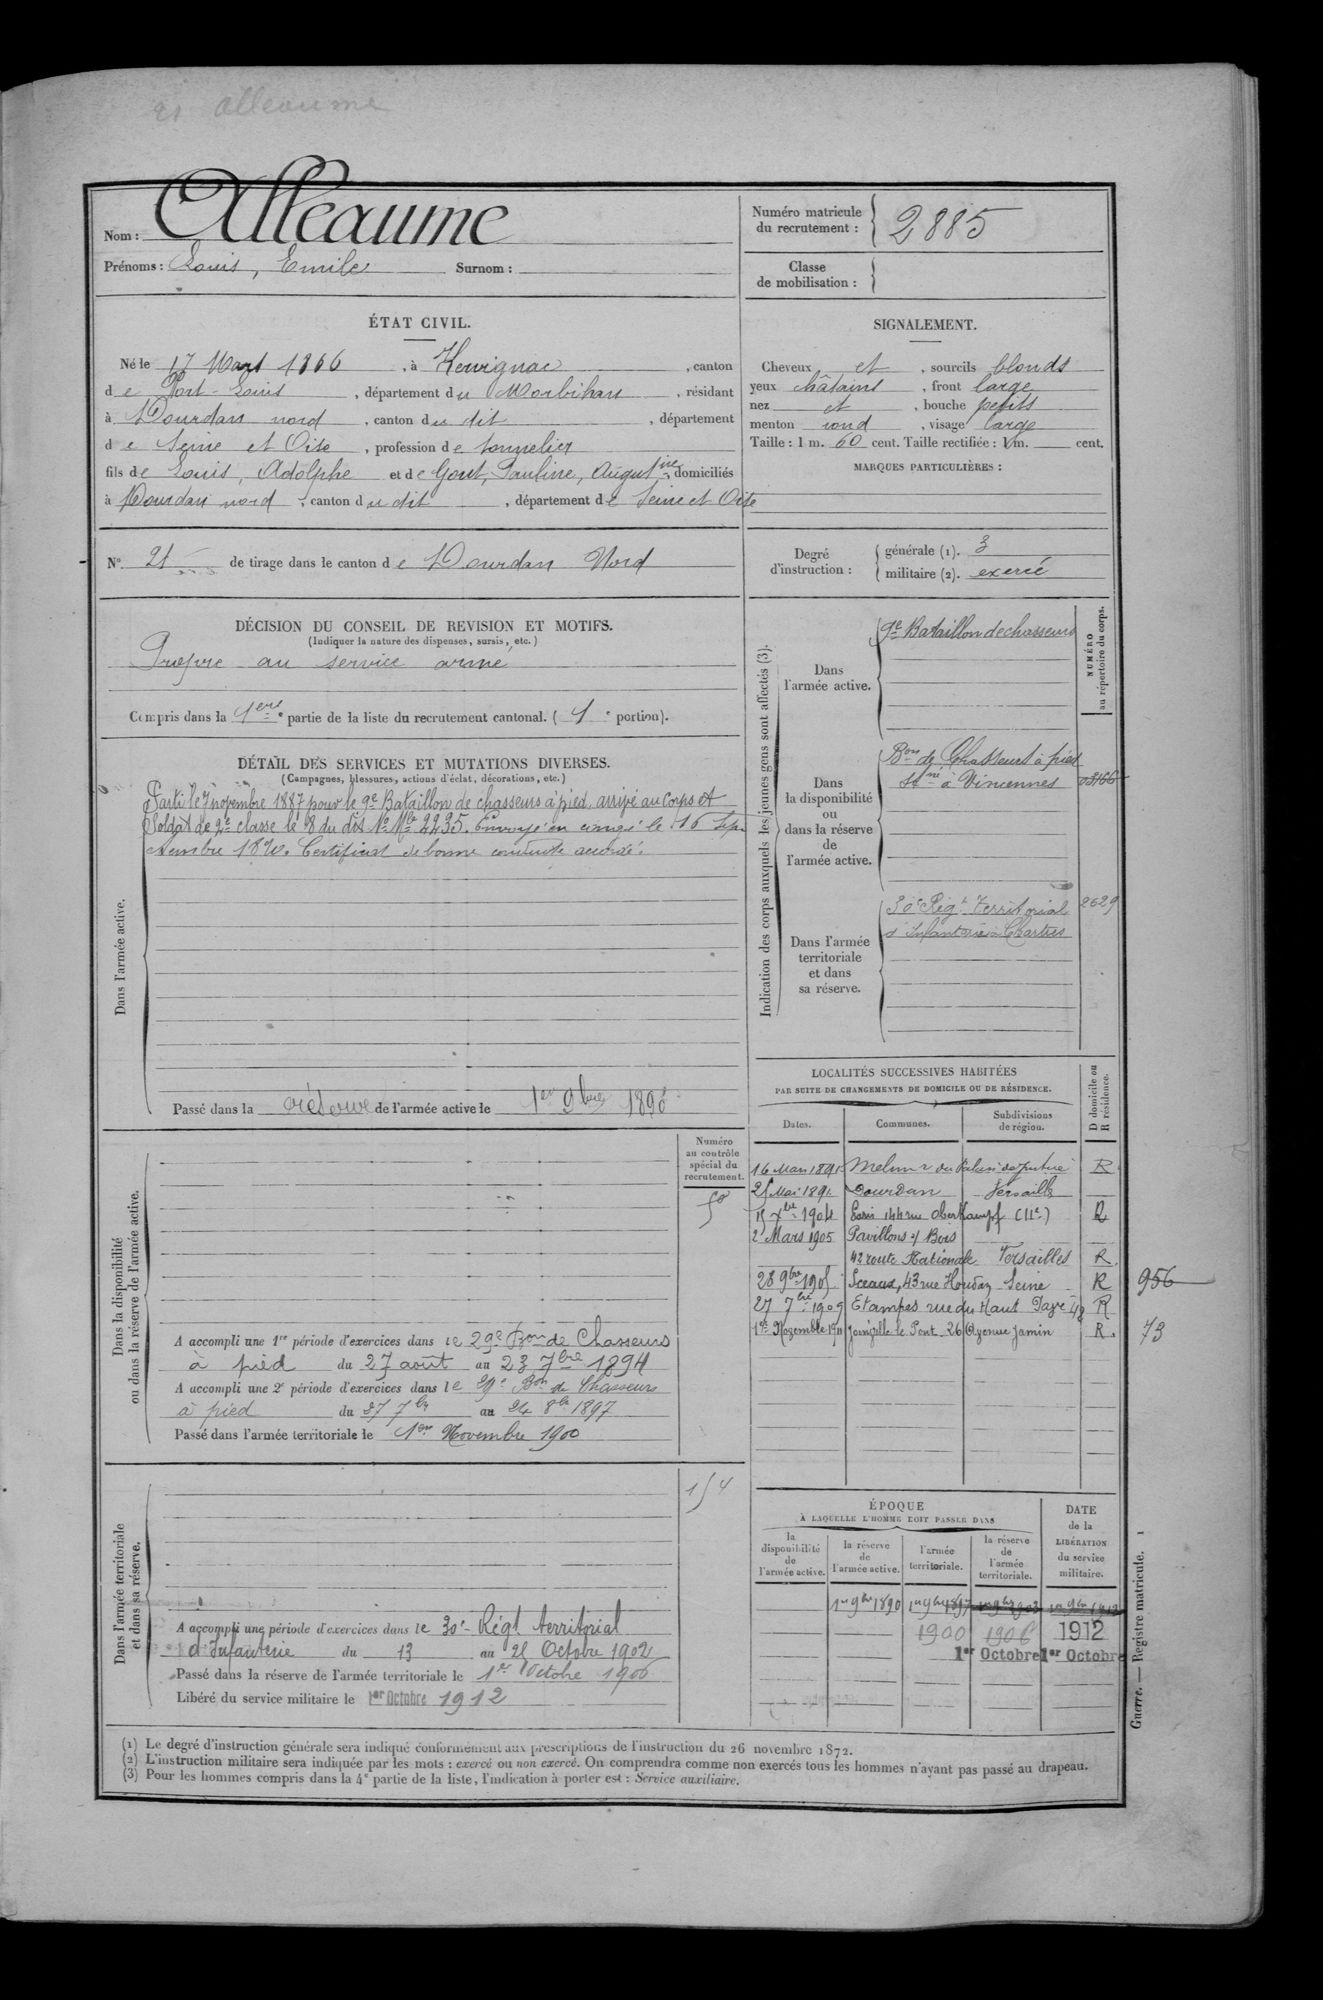 Alleaume
Nom : Alleaume
Prénoms : Louis, Emile Surnom :
Numéro matricule du recrutement : 2885
Classe de mobilisation :
ÉTAT CIVIL.
Né le 17 Mars 1866, à Kervignac, canton
de Port-Louis, département du Morbihan, résidant
à Dourdan nord, canton du dit, département
de Seine et Oise, profession de tonnelier
fils de Louis, Adolphe et de Gout, Pauline, Augustine, domiciliés
à Dourdan nord, canton du dit, département de Seine et Oise
SIGNALEMENT.
Cheveux et, sourcils blonds
yeux châtains, front large
nez et, bouche petits
menton rond, visage large
Taille : 1 m. 60 cent. Taille rectifiée : 1 m. cent.
MARQUES PARTICULIÈRES :
N° 21 de tirage dans le canton de Dourdan Nord
Degré d'instruction :
générale (1). 3
militaire (2). exercé
DÉCISION DU CONSEIL DE REVISION ET MOTIFS.
(Indiquer la nature des dispenses, sursis, etc.)
Propre au service armé
Compris dans la 1ère partie de la liste du recrutement cantonal. (1e portion).
DÉTAIL DES SERVICES ET MUTATIONS DIVERSES.
(Campagnes, blessures, actions d'éclat, décorations, etc.)
Dans l'armée active.
Parti le 7 novembre 1887 pour le 9e Bataillon de chasseurs à pied, arrivé au Corps et
Soldat de 2e classe le 8 du dit No Mle 2235. Envoyé en congé le 16 Sep
tembre 1890. Certificat de bonne conduite accordé.
Passé dans la réserve de l'armée active le 1er 9bre 1890
Indication des corps auxquels les jeunes gens sont affectés (3).
NUMÉRO au répertoire du corps.
Dans l'armée active.
9e Bataillon de chasseurs
Dans la disponibilité ou dans la réserve de l'armée active.
Bon de Chasseurs à pied
à Vincennes
Dans l'armée territoriale et dans sa réserve.
30e Régt Territorial 2629
d'Infanterie à Chartres
Dans la disponibilité ou dans la réserve de l'armée active.
Numéro au contrôle spécial du recrutement.
50
A accompli une 1re période d'exercices dans le 29e Bon de Chasseurs
à pied du 27 août au 23 7bre 1894
A accompli une 2e période d'exercices dans le 29e Bon de Chasseurs
à pied du 27 7bre au 24 8bre 1897
Passé dans l'armée territoriale le 1er Novembre 1900
Dans l'armée territoriale et dans sa réserve.
154
A accompli une période d'exercices dans le 30e Régt territorial
d'Infanterie du 13 au 25 Octobre 1902
Passé dans la réserve de l'armée territoriale le 1er Octobre 1906
Libéré du service militaire le 1er Octobre 1912
LOCALITÉS SUCCESSIVES HABITÉES
PAR SUITE DE CHANGEMENTS DE DOMICILE OU DE RÉSIDENCE.
Dates. Communes. Subdivisions de région. D domicile ou R résidence.
16 Mars 1891 Melun r du Palais de justice R
25 Mai 1891 Dourdan Versailles
15 7bre 1904 Paris 144 rue Oberkampf (11e) R
2 Mars 1905 Pavillons s/ Bois
42 route Nationale Versailles R
28 9bre 1905 Sceaux, 43 rue Houdan Seine R 956
27 7bre 1909 Etampes rue du Haut Pavé 48 R
1er Novembre 1911 Joinville le Pont 26 Avenue Jamin R. 73
ÉPOQUE
À LAQUELLE L'HOMME DOIT PASSER DANS
la disponibilité de l'armée active.
la réserve de l'armée active.
l'armée territoriale.
la réserve de l'armée territoriale.
DATE de la LIBÉRATION du service militaire.
1er 9bre 1890 1er 9bre 1897 1er 9bre 1903 1er 9bre 1912
1900 1906 1912
1er Octobre 1er Octobre
Guerre. — Registre matricule. 1
(1) Le degré d'instruction générale sera indiqué conformément aux prescriptions de l'instruction du 26 novembre 1872.
(2) L'instruction militaire sera indiquée par les mots : exercé ou non exercé. On comprendra comme non exercés tous les hommes n'ayant pas passé au drapeau.
(3) Pour les hommes compris dans la 4e partie de la liste, l'indication à porter est : Service auxiliaire.